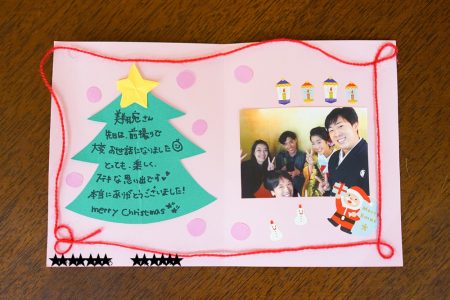 美翔苑さん
先日は、前撮りで
大変お世話になりました
とても、楽しく、
ステキな思い出です
本当にありがとうございました!
merry Christmas
Merry
Xmas